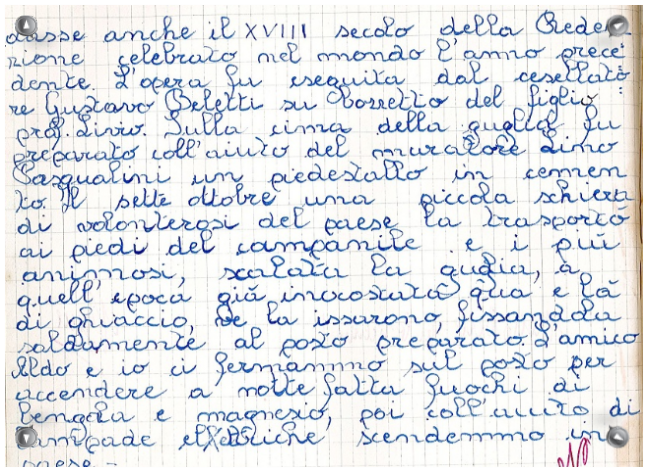 dasse anche il XVIII secolo della Reden
zione celebrato nel mondo l'anno prece
dente. L'opera fu eseguita dal cesellato
re Gustavo Beletti su bozzetto del figlio
prof. Livio. Sulla cima della guglia fu
preparato coll'aiuto del muratore Dino
Pasqualini un piedestallo in cemen
to. Il sette ottobre una piccola schiera
di volonterosi del paese la trasportò
ai piedi del campanile e i più
animosi, scalata la guglia, a
quell'epoca già incrostata qua e là
di ghiaccio, ve la issarono, fissandola
saldamente al posto preparato. L'amico
Aldo e io ci fermammo sul posto per
accendere a notte fatta fuochi di
bengala e magnesio, poi coll'aiuto di
lampade elettriche scendemmo in
paese -